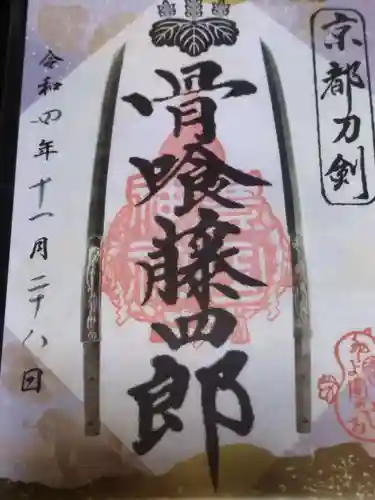 京都刀剣
骨喰藤四郎
令和四年十一月二十八日